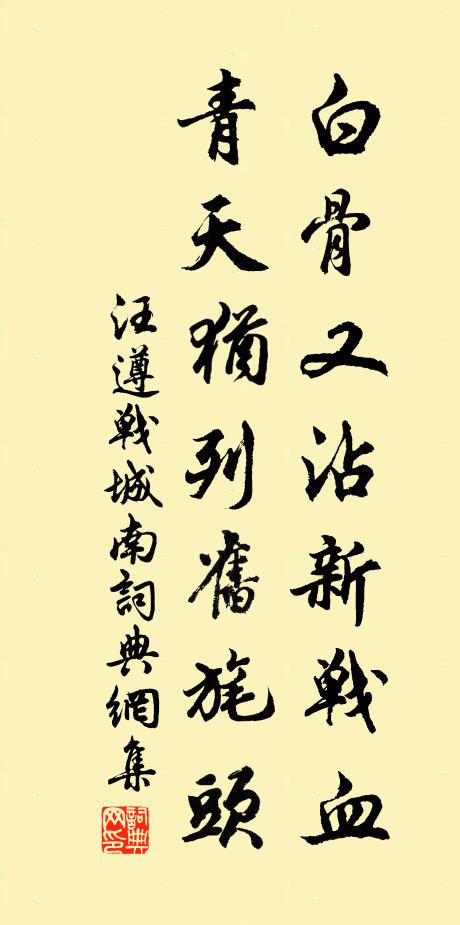 白骨又沾新戰血
青天猶列舊旄頭
汪遵戰城南詞典網集
詞典網印